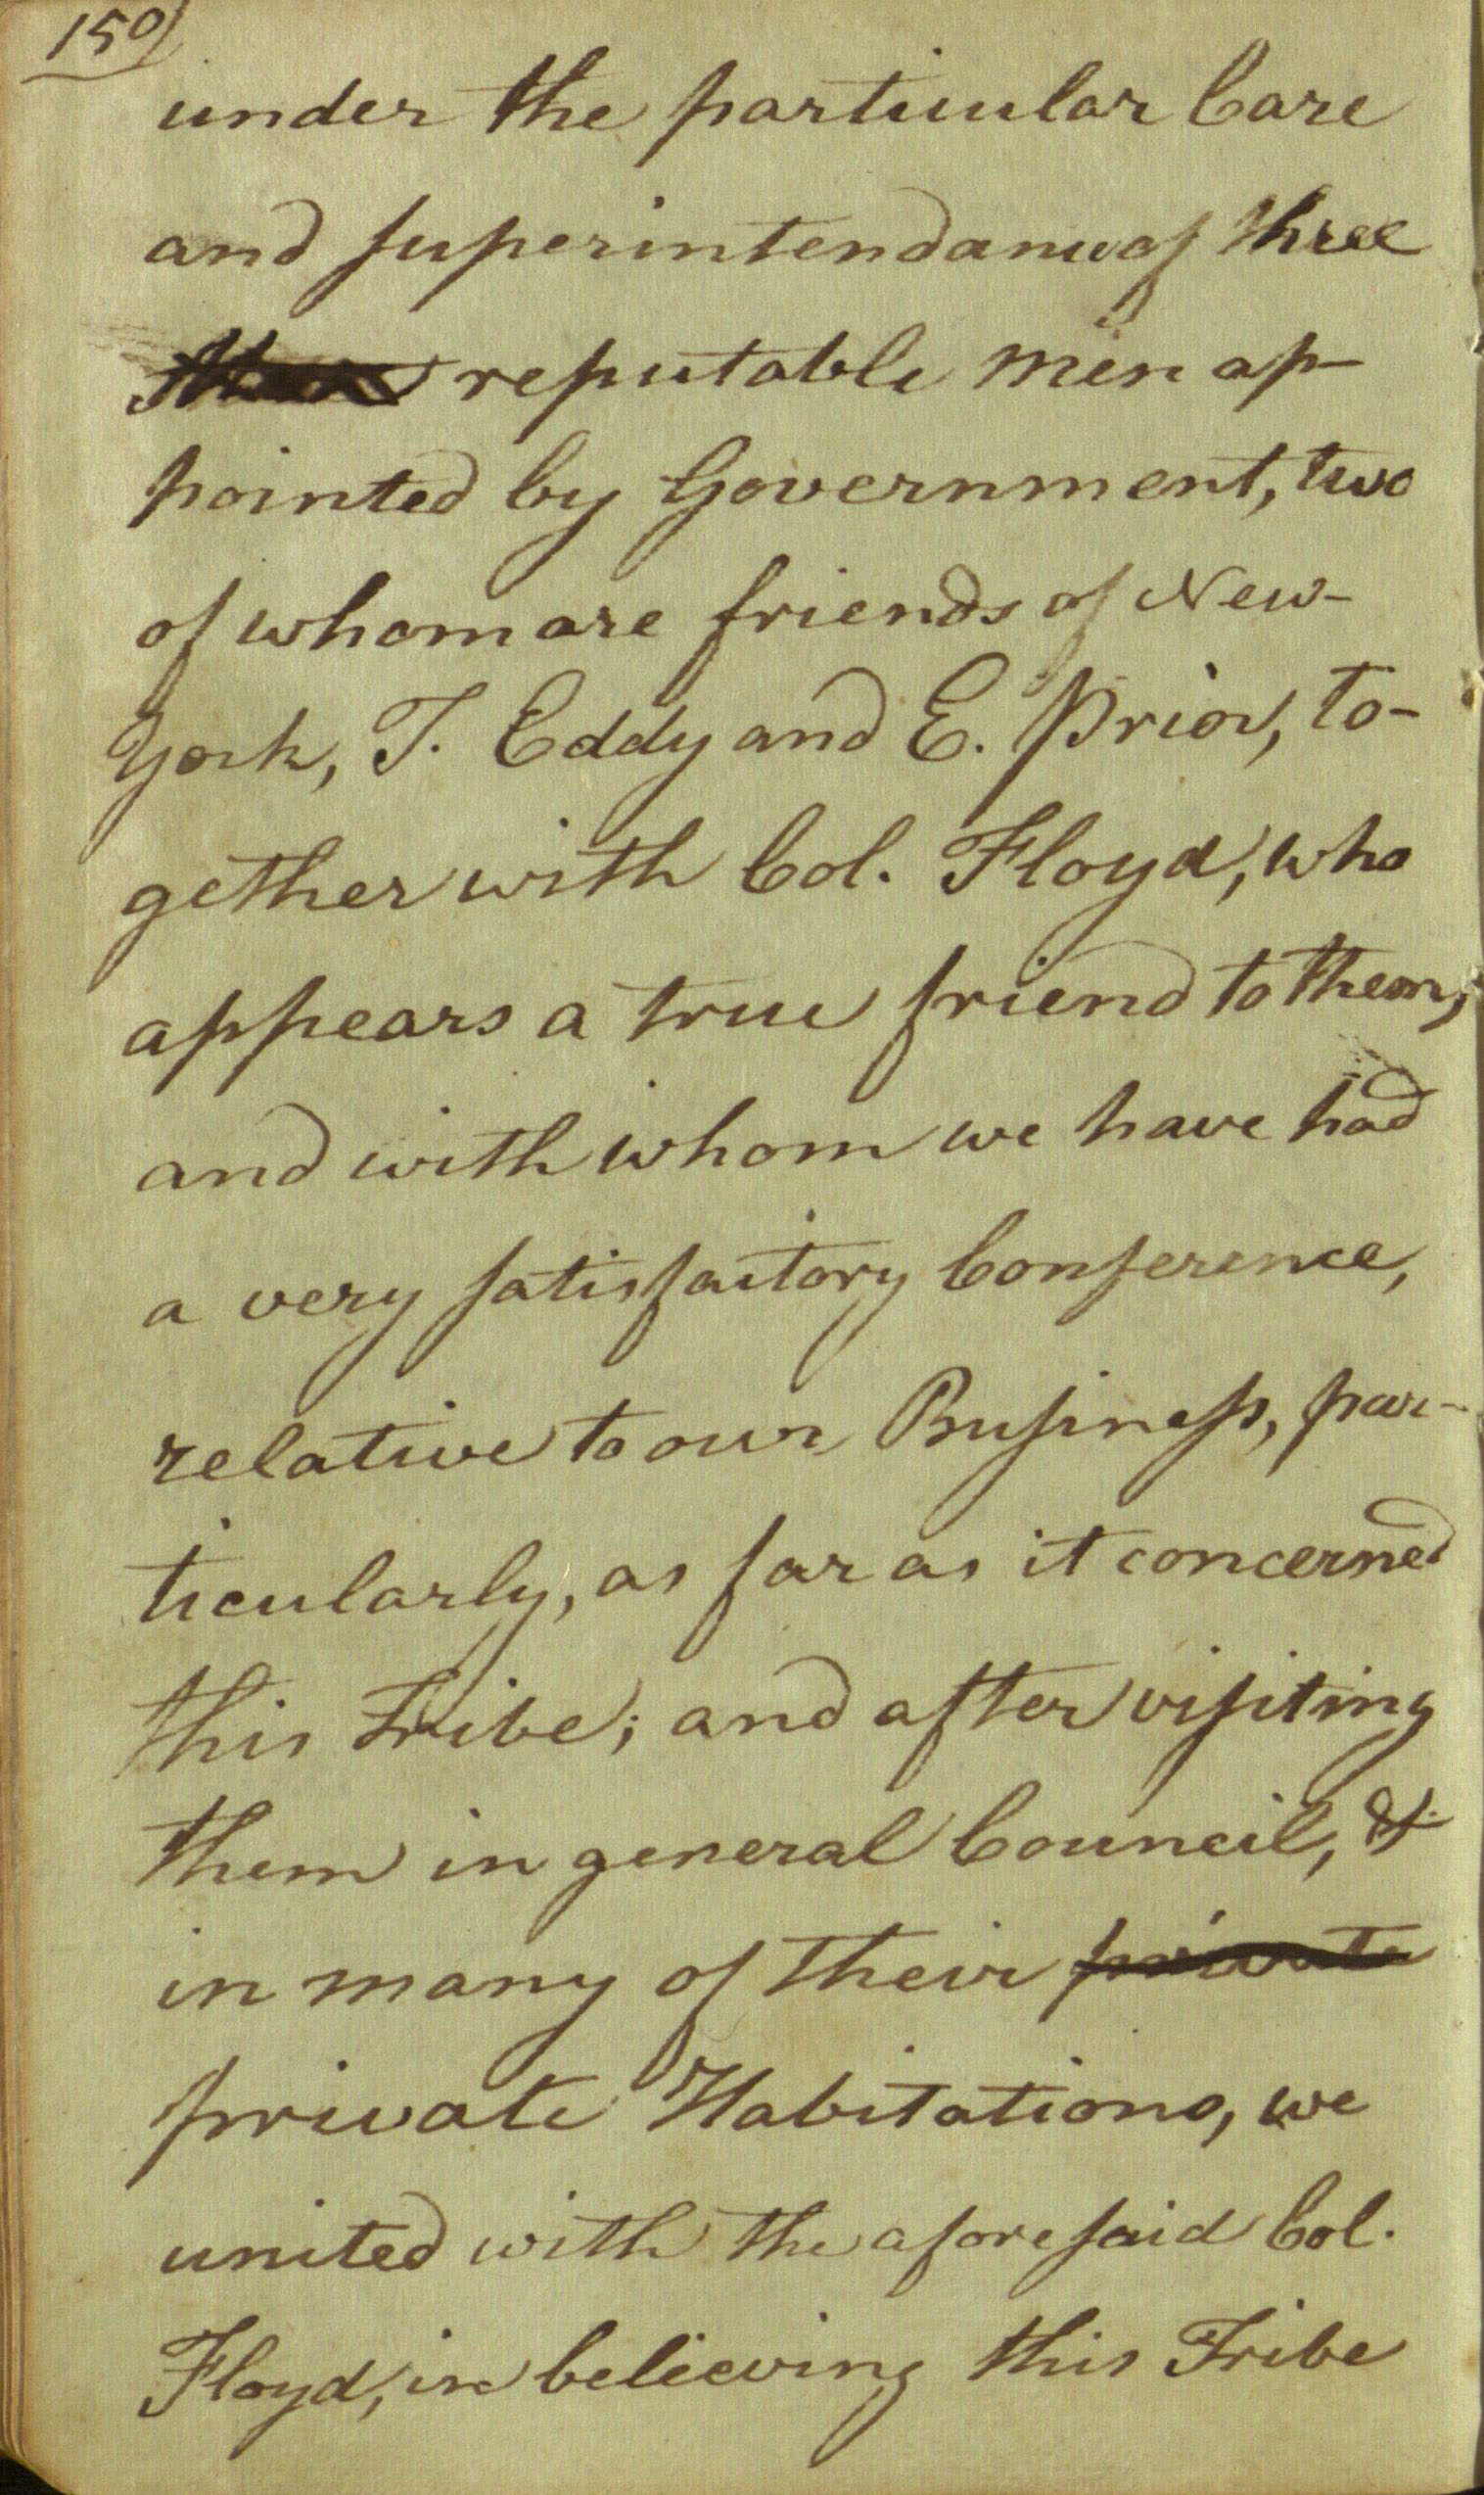 150)
under the particular Care
and superintendance of three
reputable men ap-
pointed by Government, two
of whom are friends of New-
York, T. Eddy and E. Prior, to-
gether with Col. Floyd, who
appears a true friend to them,
and with whom we have had
a very satisfactory Conference,
relative to our Business, par-
ticularly, as far as it concerned
this Tribe; and after visiting
them in general Council, &
in many of their private
private Habitations, we
united with the aforesaid Col.
Floyd, in believing this Tribe